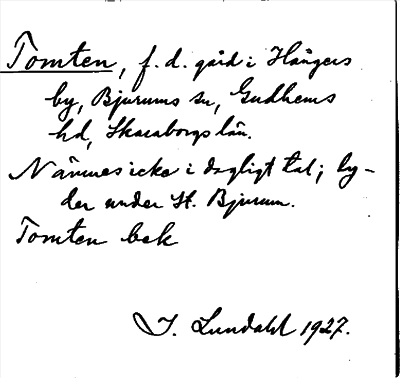 Tomten, f. d. gård i Hångers
by, Bjurums sn, Gudhems
hd, Skaraborgs län.
Nämnes icke i dagligt tal; ly-
der under St. Bjurum.
Tomten bek
I. Lundahl 1927.